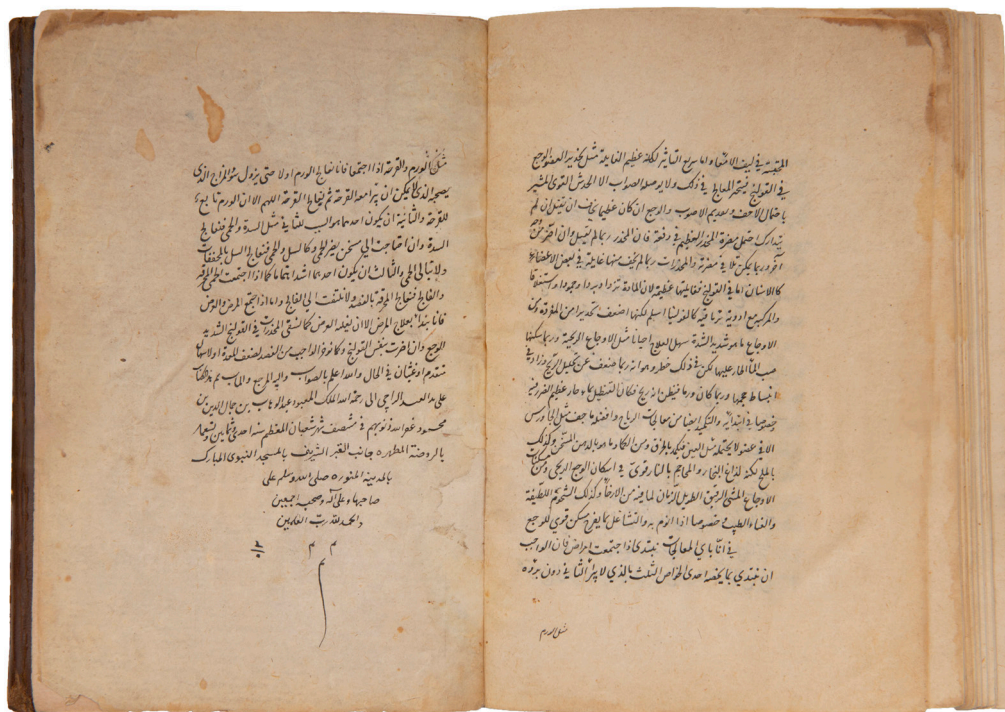 المحتبسة في ليف الامعاء واما سريع التاثير لكنه عظيم الغايلة مثل تخدير العضو الوجع
في القولنج فيتحير المعالج في ذلك ولا يوصله الصواب الا الحدس القوى المشير
والوجع ان كان عظيما يخاف ان يقتل ان لم
يتدارك احتمل مضرة المخدر العظيم في دفعة فان المخدر ربما لم يقتل وان اضر من وجه
آخر وربما يمكن تلافى مضرته والمخدرات ربما لم يخف منها غايلة في بعض الاعضا
كالاسنان اما في القولنج فغايلتها عظيمة لان المادة تزداد بردا وجمودا واستغلاقا
والمركبة مع ادوية ترياقية كالفلونيا اسلم لكنها اضعف تخديرا من المفردة ومن
الاوجاع ما هو شديد الشدة سهل العلاج احيانا مثل الاوجاع الريحية وربما سكنها
صب الماء الحار عليها لكن في ذلك خطر وهو انه ربما ضعف عن تحليل الريح وزاد في
انبساط حجمها وربما كان ورما فيظن انه ريح فكان التنطيل بماء حار عظيم الضرر
خصوصا في ابتدائه والتكميد ايضا من معالجات الرياح وافضله ما خف مثل الجاورس
الا في عضو لا يحتمله مثل العين فيكمد بالخرق ومن الكماد ما هو بالدهن المسخن وكذلك
بالملح لكنه لذاع البخار والمحاجم بالنار قوى في اسكان الوجع الريحى ومن مسكنات
الاوجاع المشى الرقيق الطويل الزمان لما فيه من الارخا وكذلك الشحوم اللطيفة
والغناء الطيب خصوصا اذا نوم به والتشاغل بما يفرح مسكن قوى للوجع
في انا باى المعالجات نبتدى اذا اجتمعت امراض فان الواجب
ان نبتدي بما يخصه احدى الخواص الثلث بالذي لا يبرأ الثانى دون برؤه
مثل الورم
مثل الورم والقرحة اذا اجتمعا فانا نعالج الورم اولا حتى يزول سو المزاج الذى
يصحبه الذى لا يمكن ان تبرا معه القرحة ثم نعالج القرحة اللهم الا ان الورم تابع
للقرحة والثانية ان يكون احدهما هو السبب للثانية مثل السدة والحمى فنعالج
السدة وان احتاجت الى مسخن يضر الحمى وكالسل والحمى فنعالج السل بالمجففات
ولا تبالى الحمى والثالث ان يكون احدهما اشد اهتماما كما اذا اجتمعت الحمى المحرقة
والفالج فنعالج المحرقة بالفصد ولا نلتفت الى الفالج واما اذا اجتمع المرض والعرض
فانا نبدا بعلاج المرض الا ان يغلبه العرض كما نسقى المخدرات في القولنج الشديد
الوجع وان اضرت بنفس القولنج وكما نؤخر الواجب من الفصد لضعف المعدة او لاسهال
متقدم او غثيان في الحال والله اعلم بالصواب واليه المرجع والماب تم هذا الكتاب
على يد العبد الراجى الى رحمة الله الملك المعبود عبد الوهاب بن جمال الدين بن
محمود غفر الله ذنوبهم في منتصف شهر شعبان المعظم سنه احدى وثمانين وتسعمايه
بالروضة المطهره جانب القبر الشريف بالمسجد النبوى المبارك
بالمدينه المنوره صلى الله وسلم على
صاحبها وعلى آله وصحبه اجمعين
والحمد لله رب العالمين
م م
م